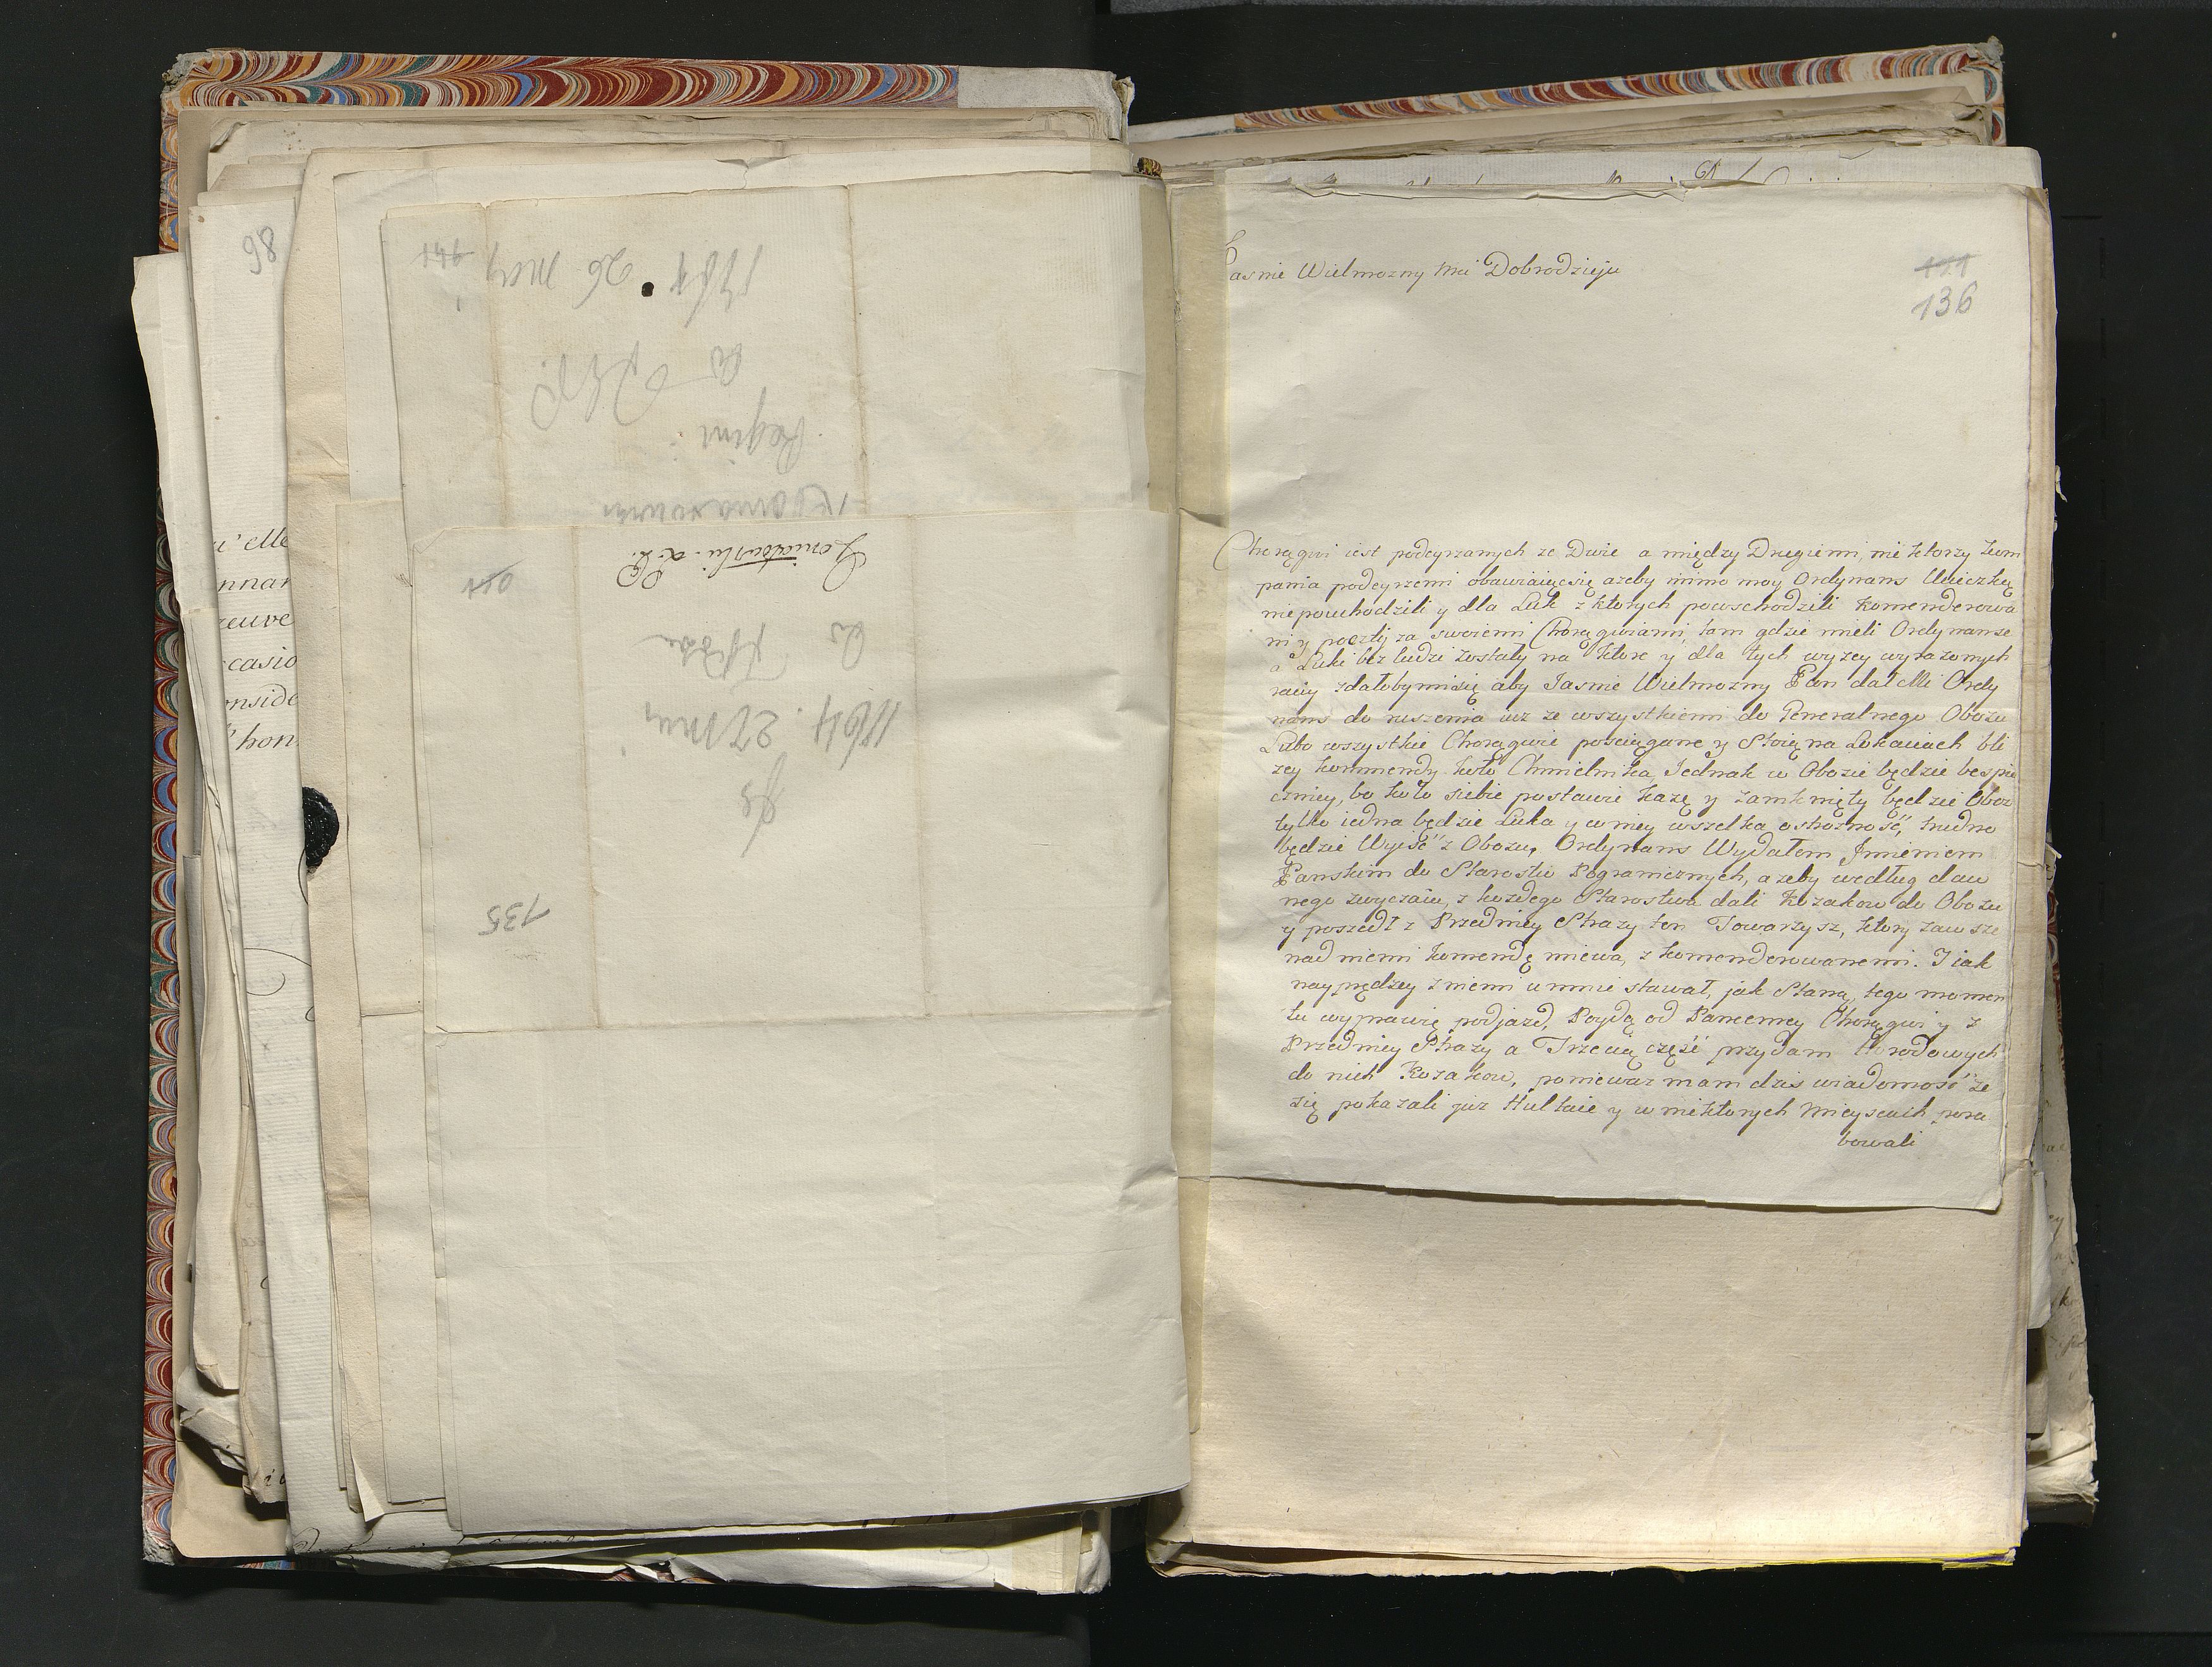 86
u'elle
casio
nside
hon
1764 26 Maj
Regim
Poniatowski
1764. 27 Maij
135
136
Jasnie Wielmozny Mci Dobrodzieju
Chorągwi iest podeyrzanych ze Dwie a między Drugiemi, nie ktorzy kom
pania podeyrzeni obawiaiąc się azeby mimo moy Ordynans Ucieczką
niepouchodzili y dla Luk z ktorych powschodzili Komenderowa
ni y poczty za swoiemi Chorągwiami, tam gdzie mieli Ordynanse
a Luki bez ludzi zostały na ktore y dla tych wyzey wyrazonych
racıy zdałobymisię aby Jasnie Wielmozny Pan dał Mi Ordy
nans do ruszenia iuz ze wszystkiemi do Generalnego Obozu
Lubo wszystkie Chorągwie pościągane y Stoią na Lokaciach bli
zey kommendy koło Chmielnika, Jednak w Obozie będzie bespie
czniey, bo koło siebie postawic kazę y zamknięty będzie Oboz
tylko iedna będzie Luka y w niey wszelka ostrozność, trudno
będzie Wyiść z Obozu, Ordynans Wydałem Jmieniem
Panskim do Starostw Pogranicznych, azeby według daw
nego zwyczaiu, z kozdego Starostwa dali Kozakow do Obozu
y poszedł z Przedniey Strazy ten Towarzysz, ktory zawsze
nad niemi komendę miewa, z komenderowanemi. I iak
nayprędzey z niemi u mnie stawał, jak Staną, tego momen
tu wyprawię podjazd, Poydą od Pancerney Chorągwi y z
Przedniey Strazy a Trzecią część przydam Horodowych
do nich Kozakow, poniewaz mam dzis wiadomość ze
się pokazali juz Hultaie y w niektorych Mieyscach pora
bowali